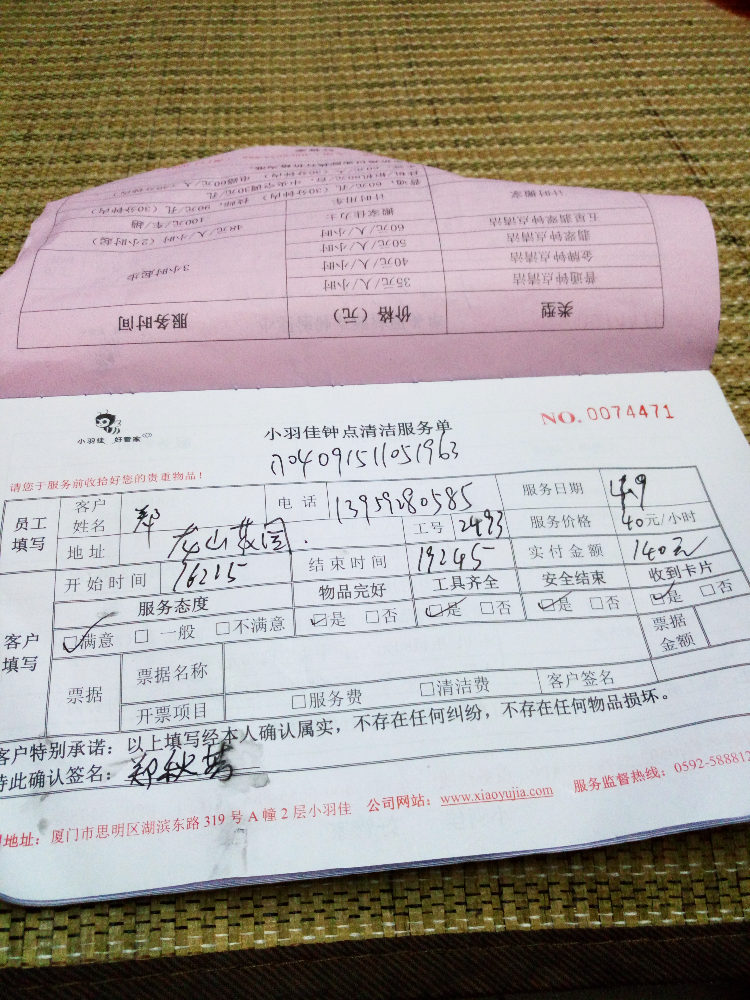 类型
价格（元）
服务时间
普通钟点清洁
35元/人/小时
3小时起步
金牌钟点清洁
40元/人/小时
翡翠钟点清洁
50元/人/小时
五星翡翠钟点清洁
60元/人/小时
48元/人/小时（2小时起）
搬家佳力士
计时搬家
计时用车
100元/车/趟
小羽佳 好管家
小羽佳钟点清洁服务单
NO.0074471
请您于服务前收拾好您的贵重物品！
员工填写
客户姓名
郑
电话
13959280585
服务日期
4.9
地址
工号
2493
服务价格
40元/小时
开始时间
16:15
结束时间
19:45
实付金额
140元
客户填写
服务态度
物品完好
工具齐全
安全结束
收到卡片
☑满意 □一般 □不满意
☑是 □否
☑是 □否
☑是 □否
☑是 □否
票据
票据名称
票据金额
开票项目
□服务费 □清洁费
客户签名
客户特别承诺：以上填写经本人确认属实，不存在任何纠纷，不存在任何物品损坏。
特此确认签名：
地址：厦门市思明区湖滨东路319号A幢2层小羽佳 公司网站：www.xiaoyujia.com 服务监督热线：0592-588812